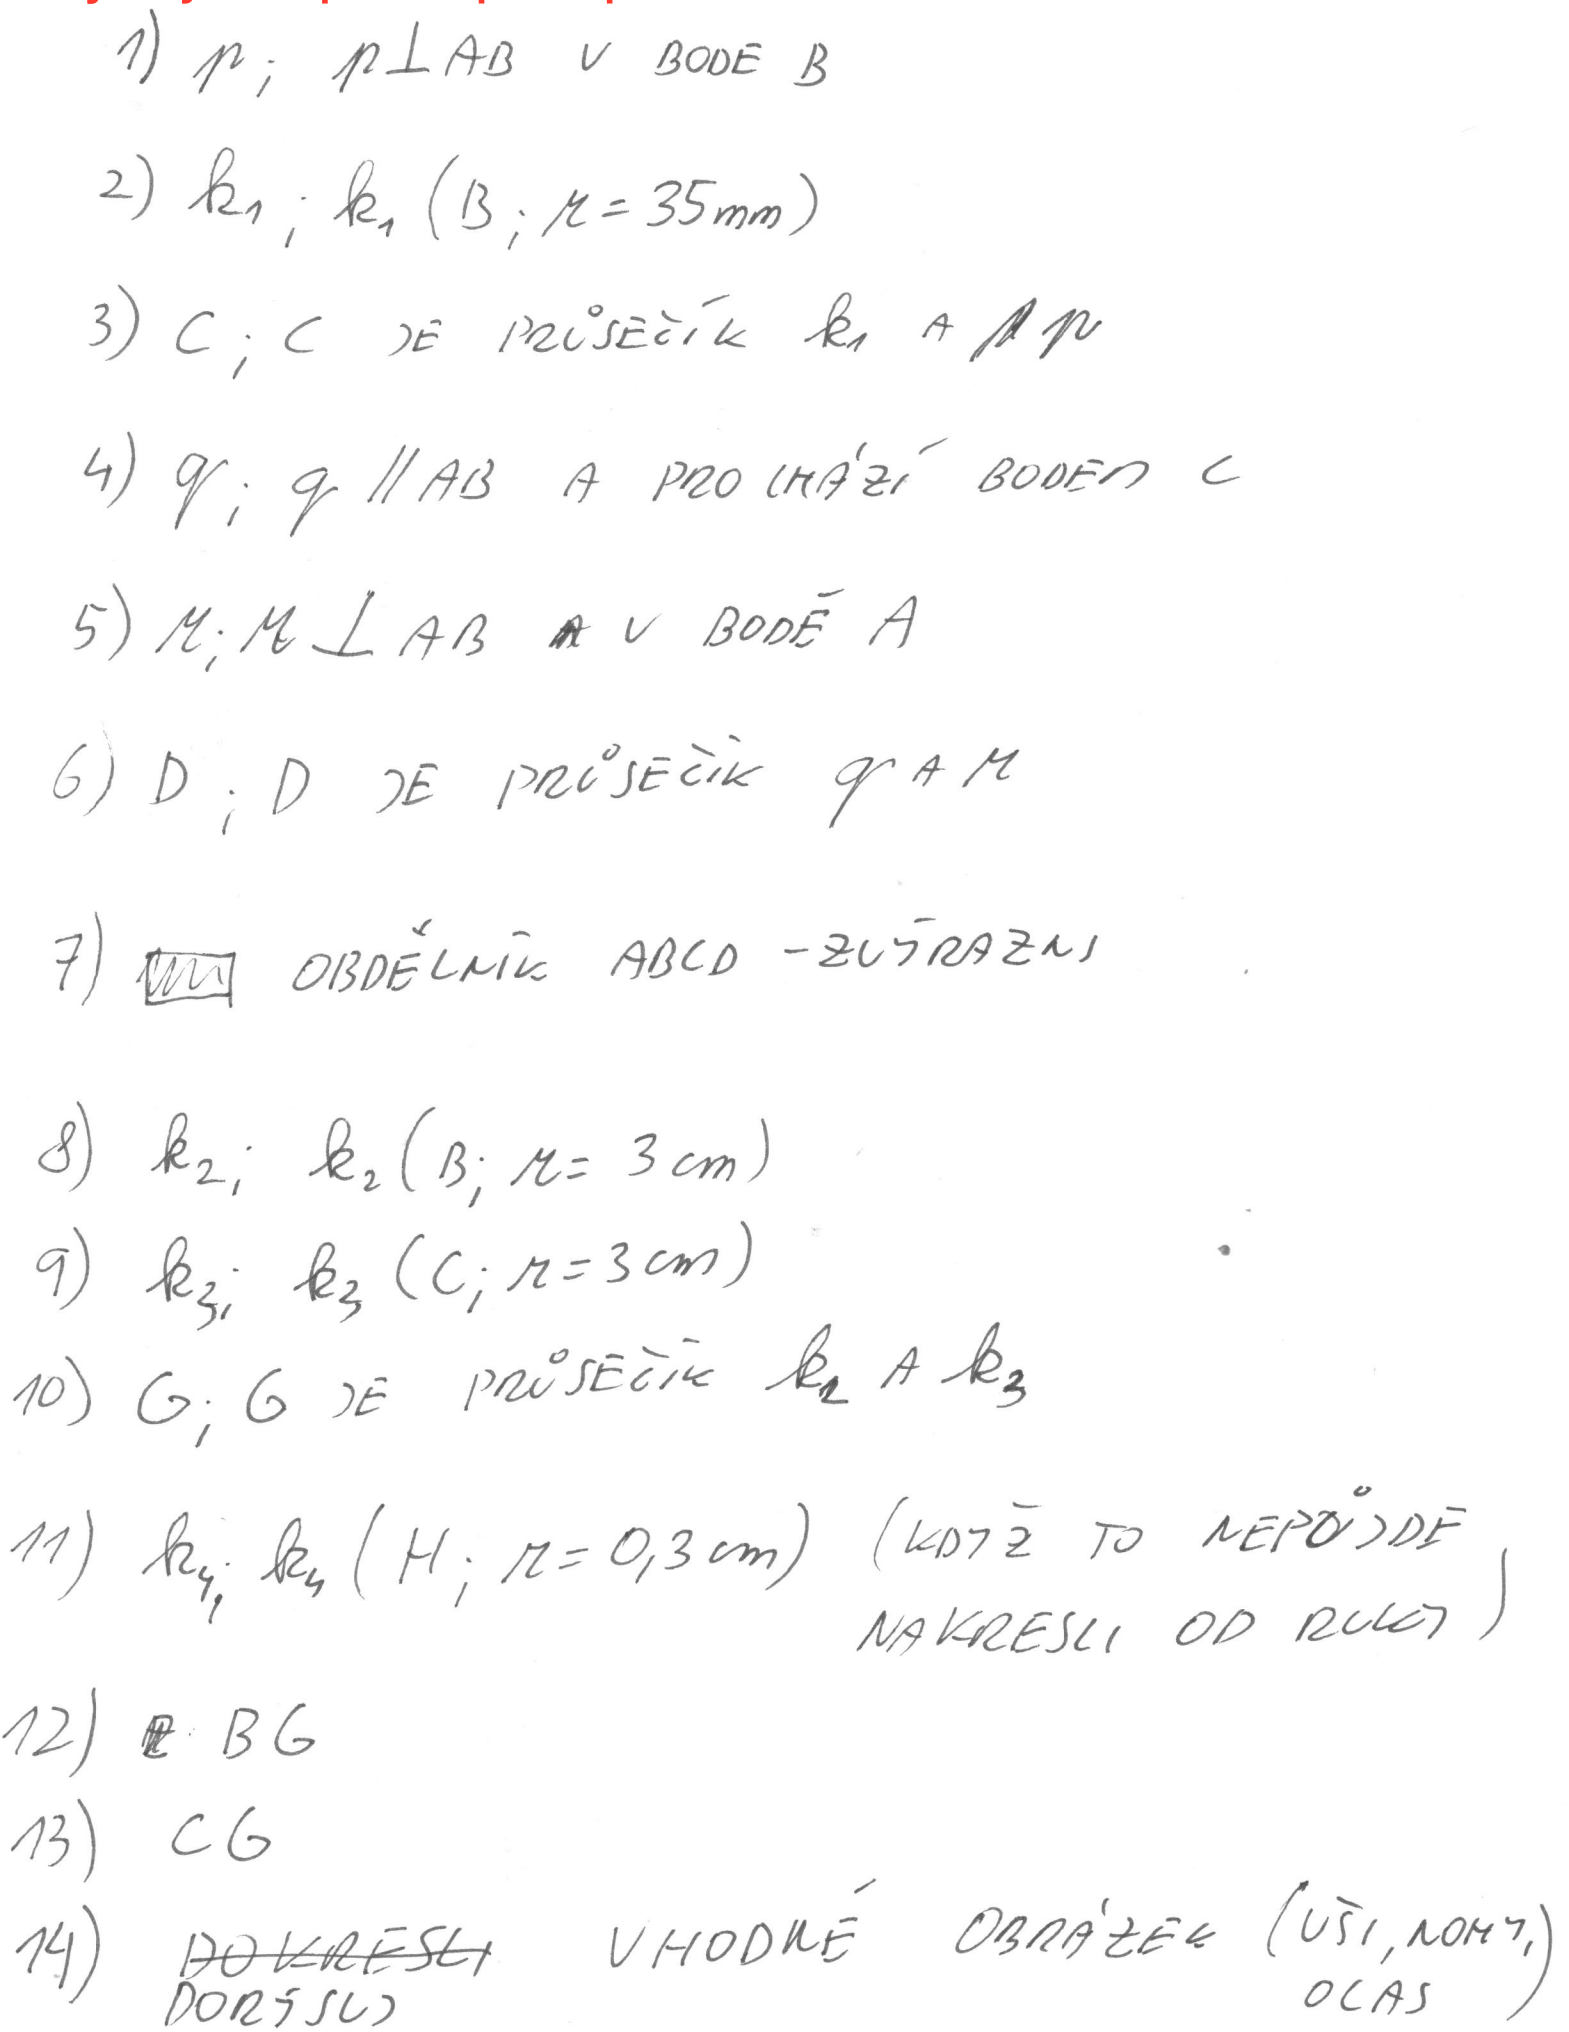 1) p; p⊥AB V BODE B
2) k1; k1 (B; r = 35mm)
3) C; C JE PRŮSEČÍK k1 A p
4) q; q // AB A PROCHÁZÍ BODEM C
5) r; r ⊥ AB V BODĚ A
6) D; D JE PRŮSEČÍK q A r
7) OBDÉLNÍK ABCD - ZVÝRAZNI
8) k2; k2 (B; r = 3 cm)
9) k3; k3 (C; r = 3 cm)
10) G; G JE PRŮSEČÍK k2 A k3
11) k4; k4 (H; r = 0,3 cm) (KDYŽ TO NEPŮJDE
NAKRESLI OD RUKY)
12) BG
13) CG
14) DOKRESLI VHODNĚ OBRÁZEK (UŠI, NOHY,
DORÝSUJ OCAS)